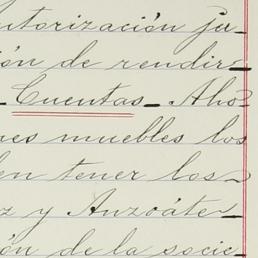 utorización ju-
ón de rendir
Cuentas_ Aho-
nes muebles los
en tener los
z y Anzoáte-
ón de la socie-